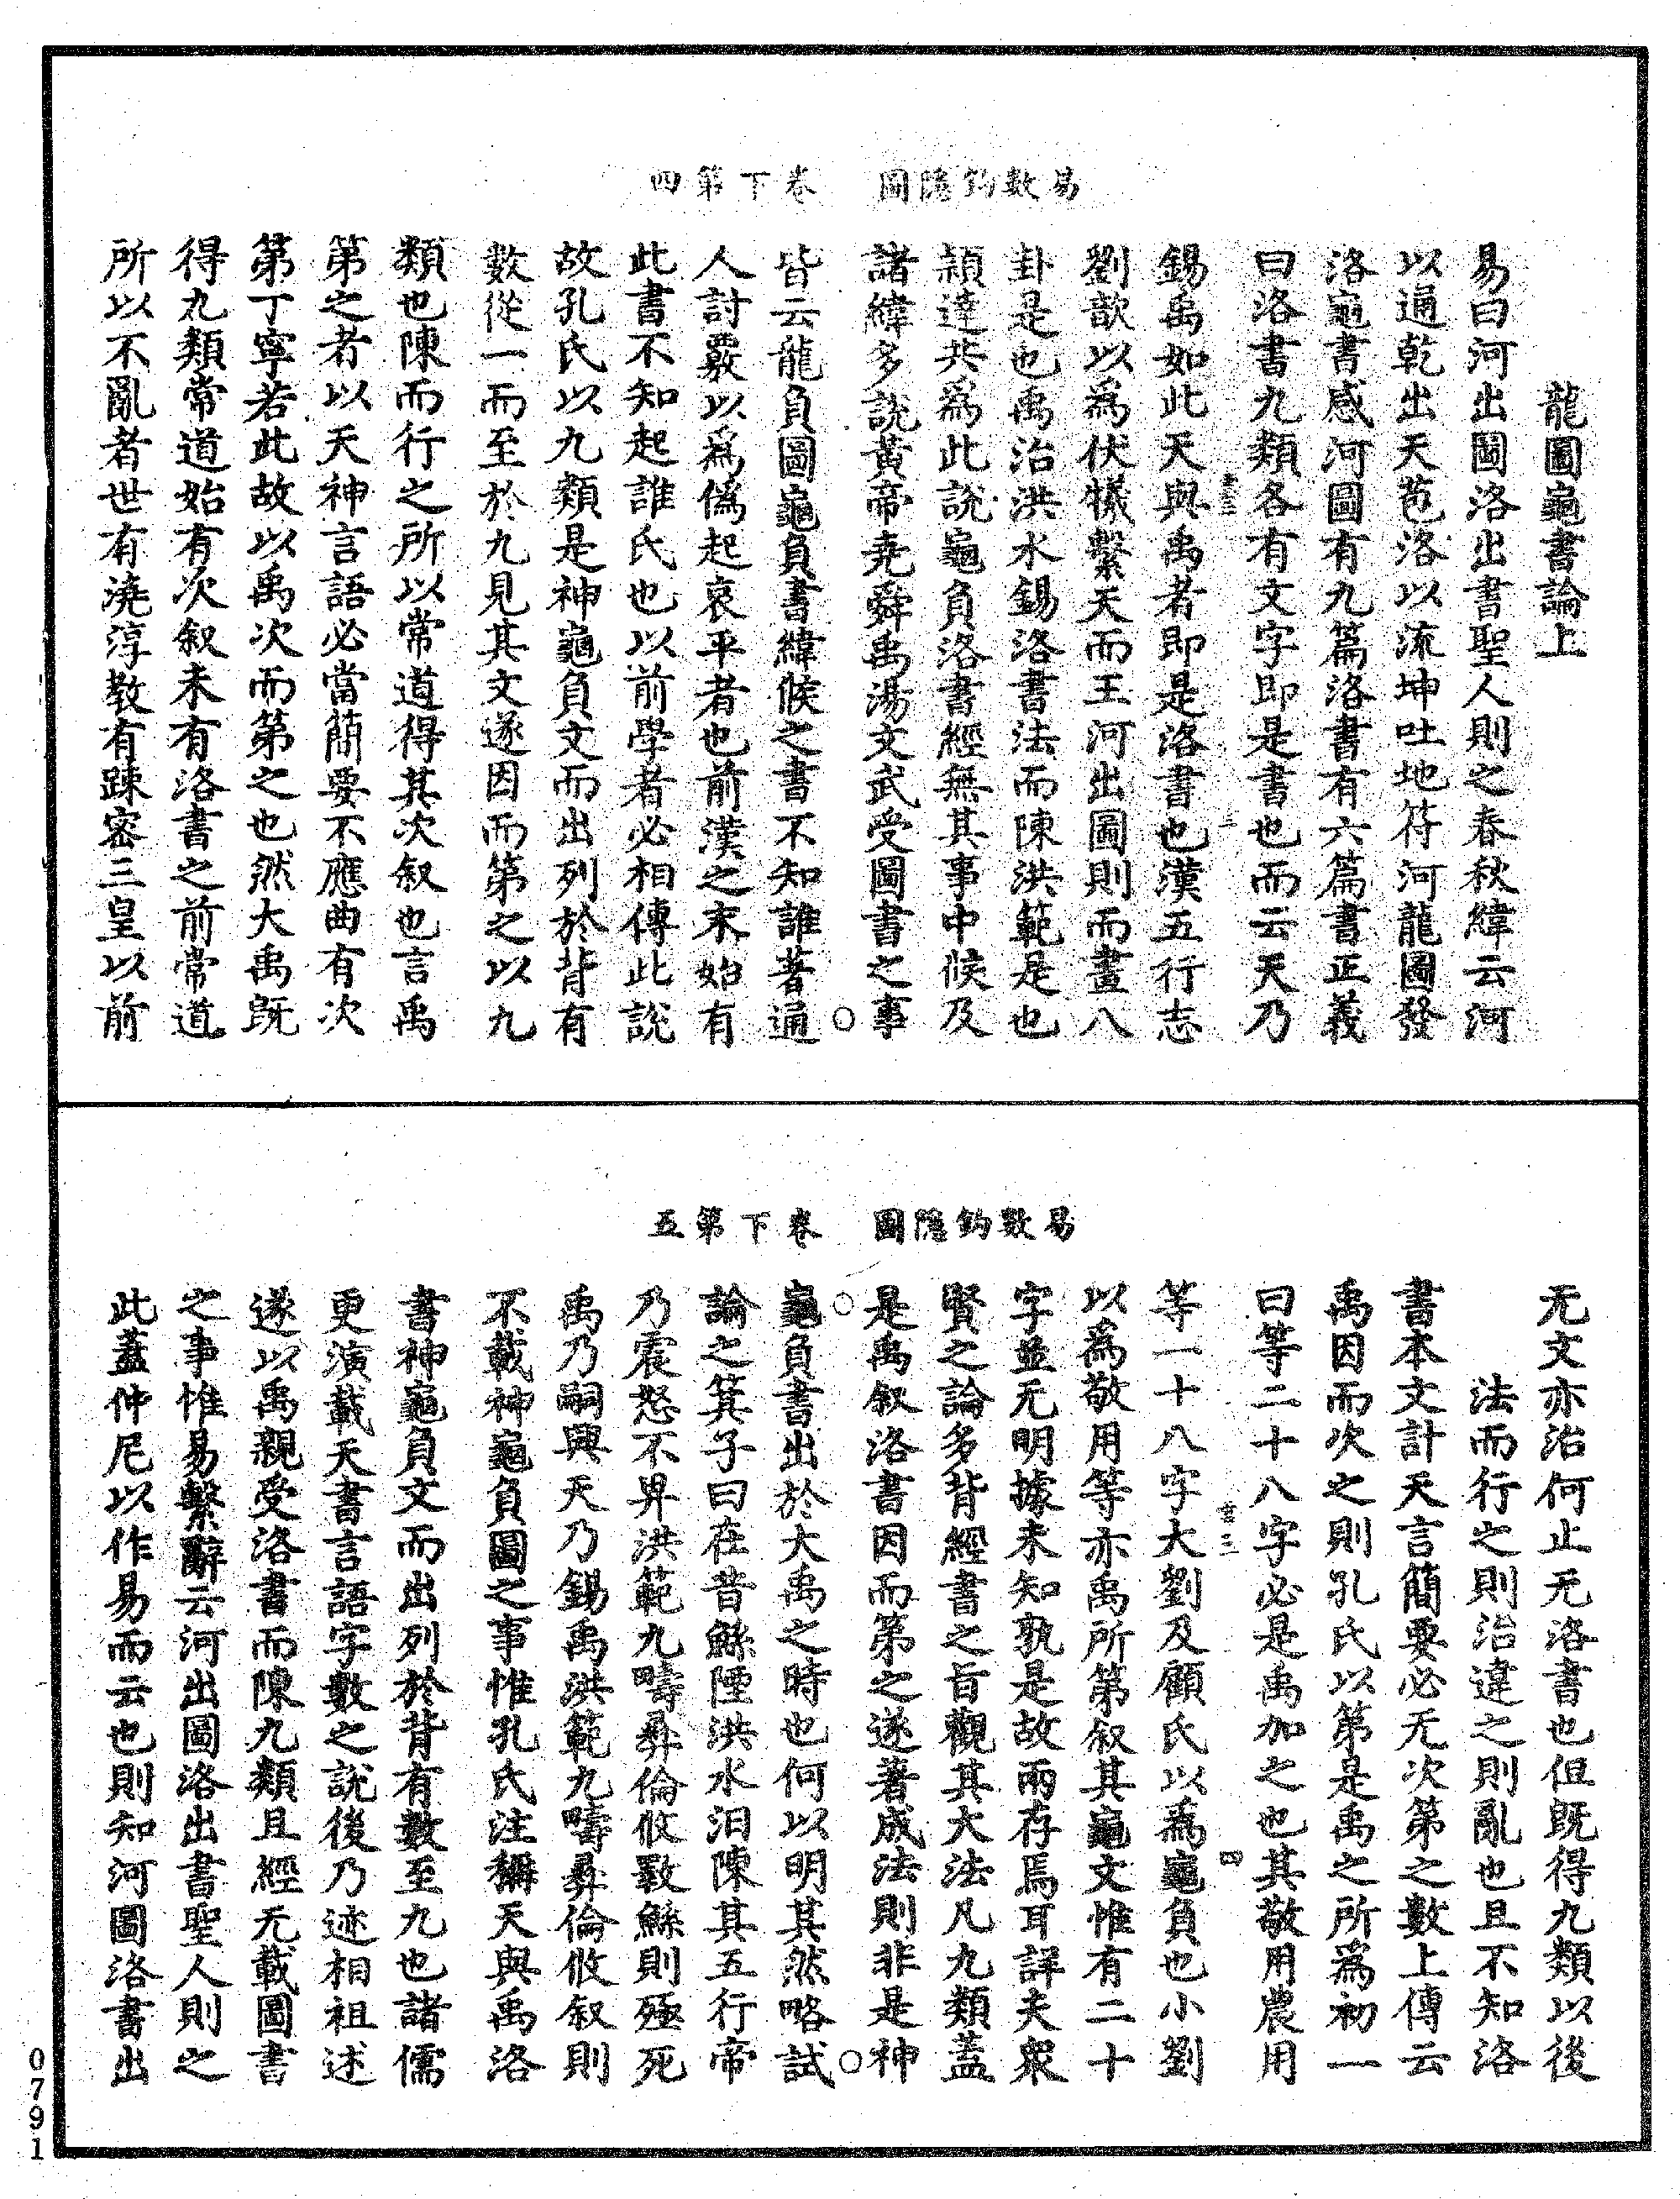 易數鈎隱圖　卷下第四
龍圖龜書論上
易曰河出圖洛出書聖人則之春秋緯云河
以通乾出天苞洛以流坤吐地符河龍圖發
洛龜書感河圖有九篇洛書有六篇書正義
曰洛書九類各有文字即是書也而云天乃
錫禹如此天與禹者即是洛書也漢五行志
劉歆以為伏犧繫天而王河出圖則而畫八
卦是也禹治洪水錫洛書法而陳洪範是也
穎達共為此說龜負洛書經無其事中候及
諸緯多說黃帝堯舜禹湯文武受圖書之事
皆云龍負圖龜負書緯候之書不知誰著通
人討覈以為偽起哀平者也前漢之末始有
此書不知起誰氏也以前學者必相傳此說
故孔氏以九類是神龜負文而出列於背有
數從一而至於九見其文遂因而第之以九
類也陳而行之所以常道得其次叙也言禹
第之者以天神言語必當簡要不應曲有次
第丁寧若此故以禹次而第之也然大禹既
得九類常道始有次叙未有洛書之前常道
所以不亂者世有澆淳教有踈密三皇以前
易數鈎隱圖　卷下第五
无文亦治何止无洛書也但既得九類以後
法而行之則治違之則亂也且不知洛
書本文計天言簡要必无次第之數上傳云
禹因而次之則孔氏以第是禹之所為初一
曰等二十八字必是禹加之也其敬用農用
等一十八字大劉及顧氏以為龜負也小劉
以為敬用等亦禹所第叙其龜文惟有二十
字並无明據未知孰是故兩存焉耳詳夫眾
賢之論多背經書之旨觀其大法凡九類蓋
是禹叙洛書因而第之遂著成法則非是神
龜負書出於大禹之時也何以明其然略試
論之箕子曰在昔鯀陻洪水汨陳其五行帝
乃震怒不畀洪範九疇彝倫攸斁鯀則殛死
禹乃嗣興天乃錫禹洪範九疇彝倫攸叙則
不載神龜負圖之事惟孔氏注稱天與禹洛
書神龜負文而出列於背有數至九也諸儒
更演載天書言語字數之說後乃迹相祖述
遂以禹親受洛書而陳九類且經无載圖書
之事惟易繫辭云河出圖洛出書聖人則之
此蓋仲尼以作易而云也則知河圖洛書出
0791